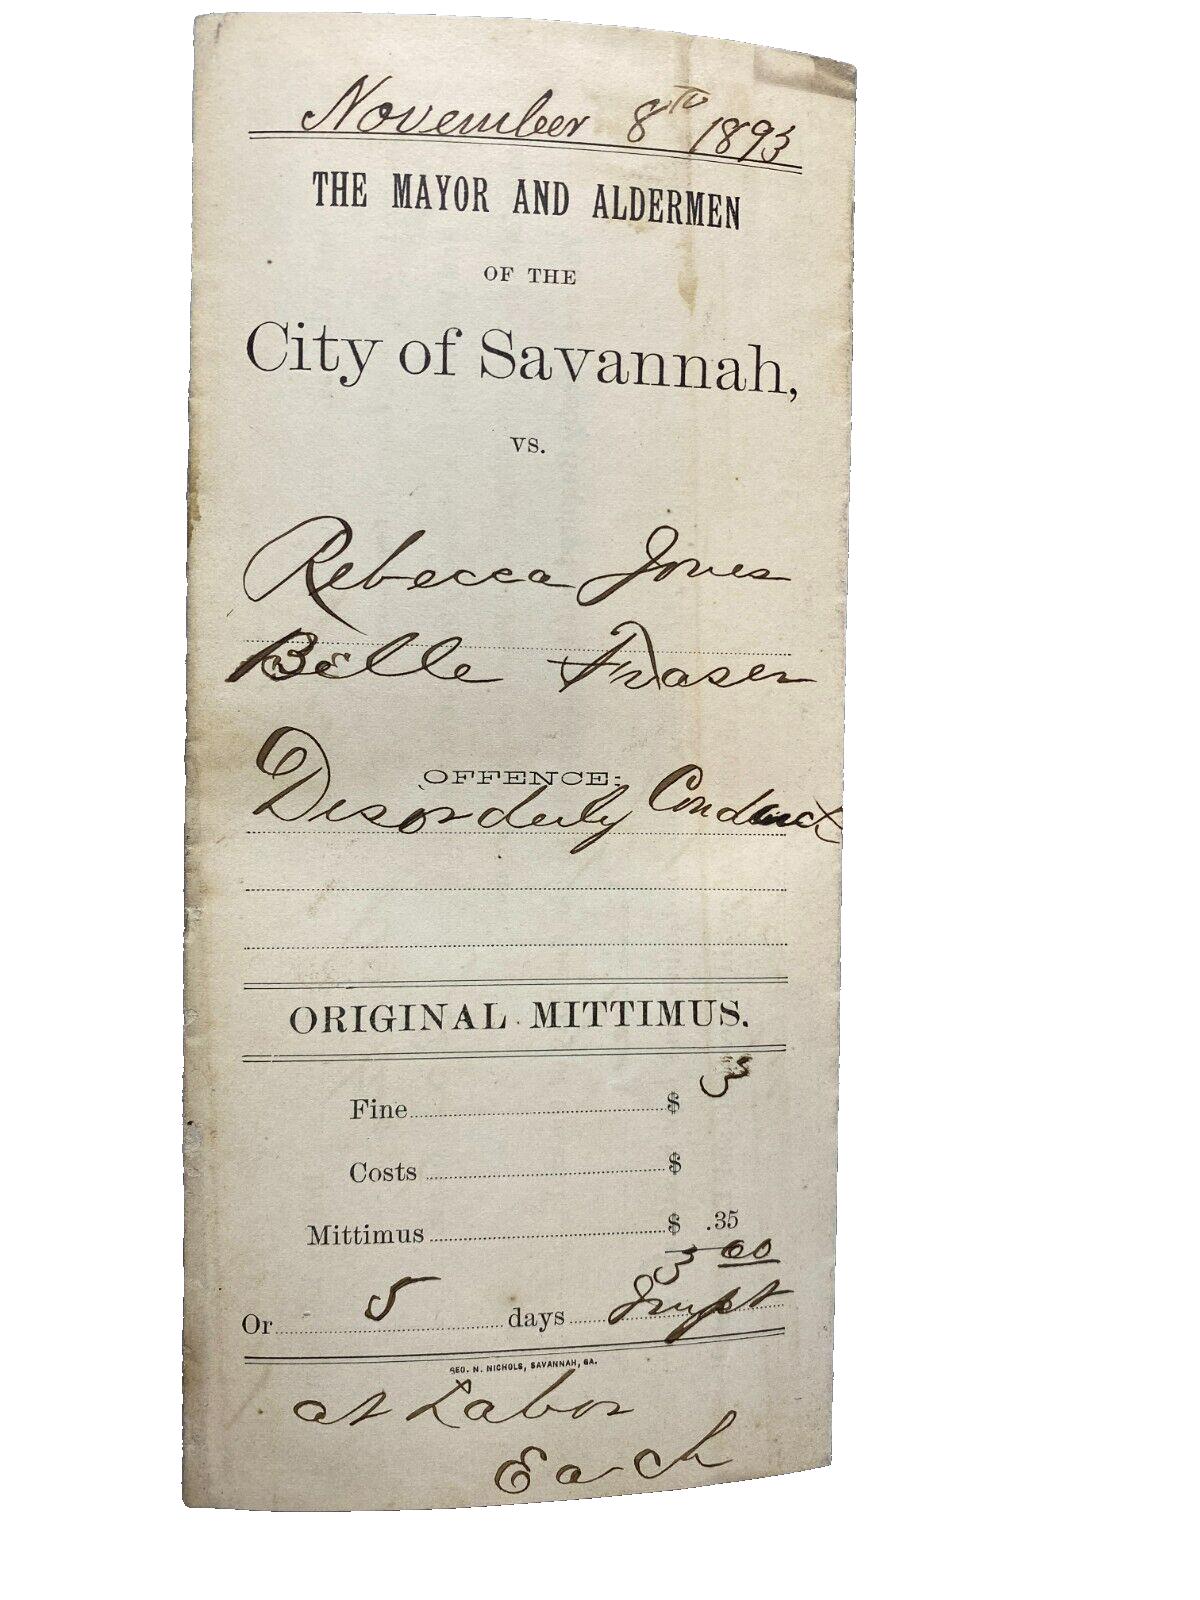 November 8TH 1893
THE MAYOR AND ALDERMEN
OF THE
City of Savannah,
VS.
Rebecca Jones
Belle Fraser
OFFENCE:
Disorderly Conduct
ORIGINAL MITTIMUS.
Fine $ 3
Costs $
Mittimus $ .35
3 00
Or 5 days Impt
GEO. N. NICHOLS, SAVANNAH, GA.
at Labor
Each